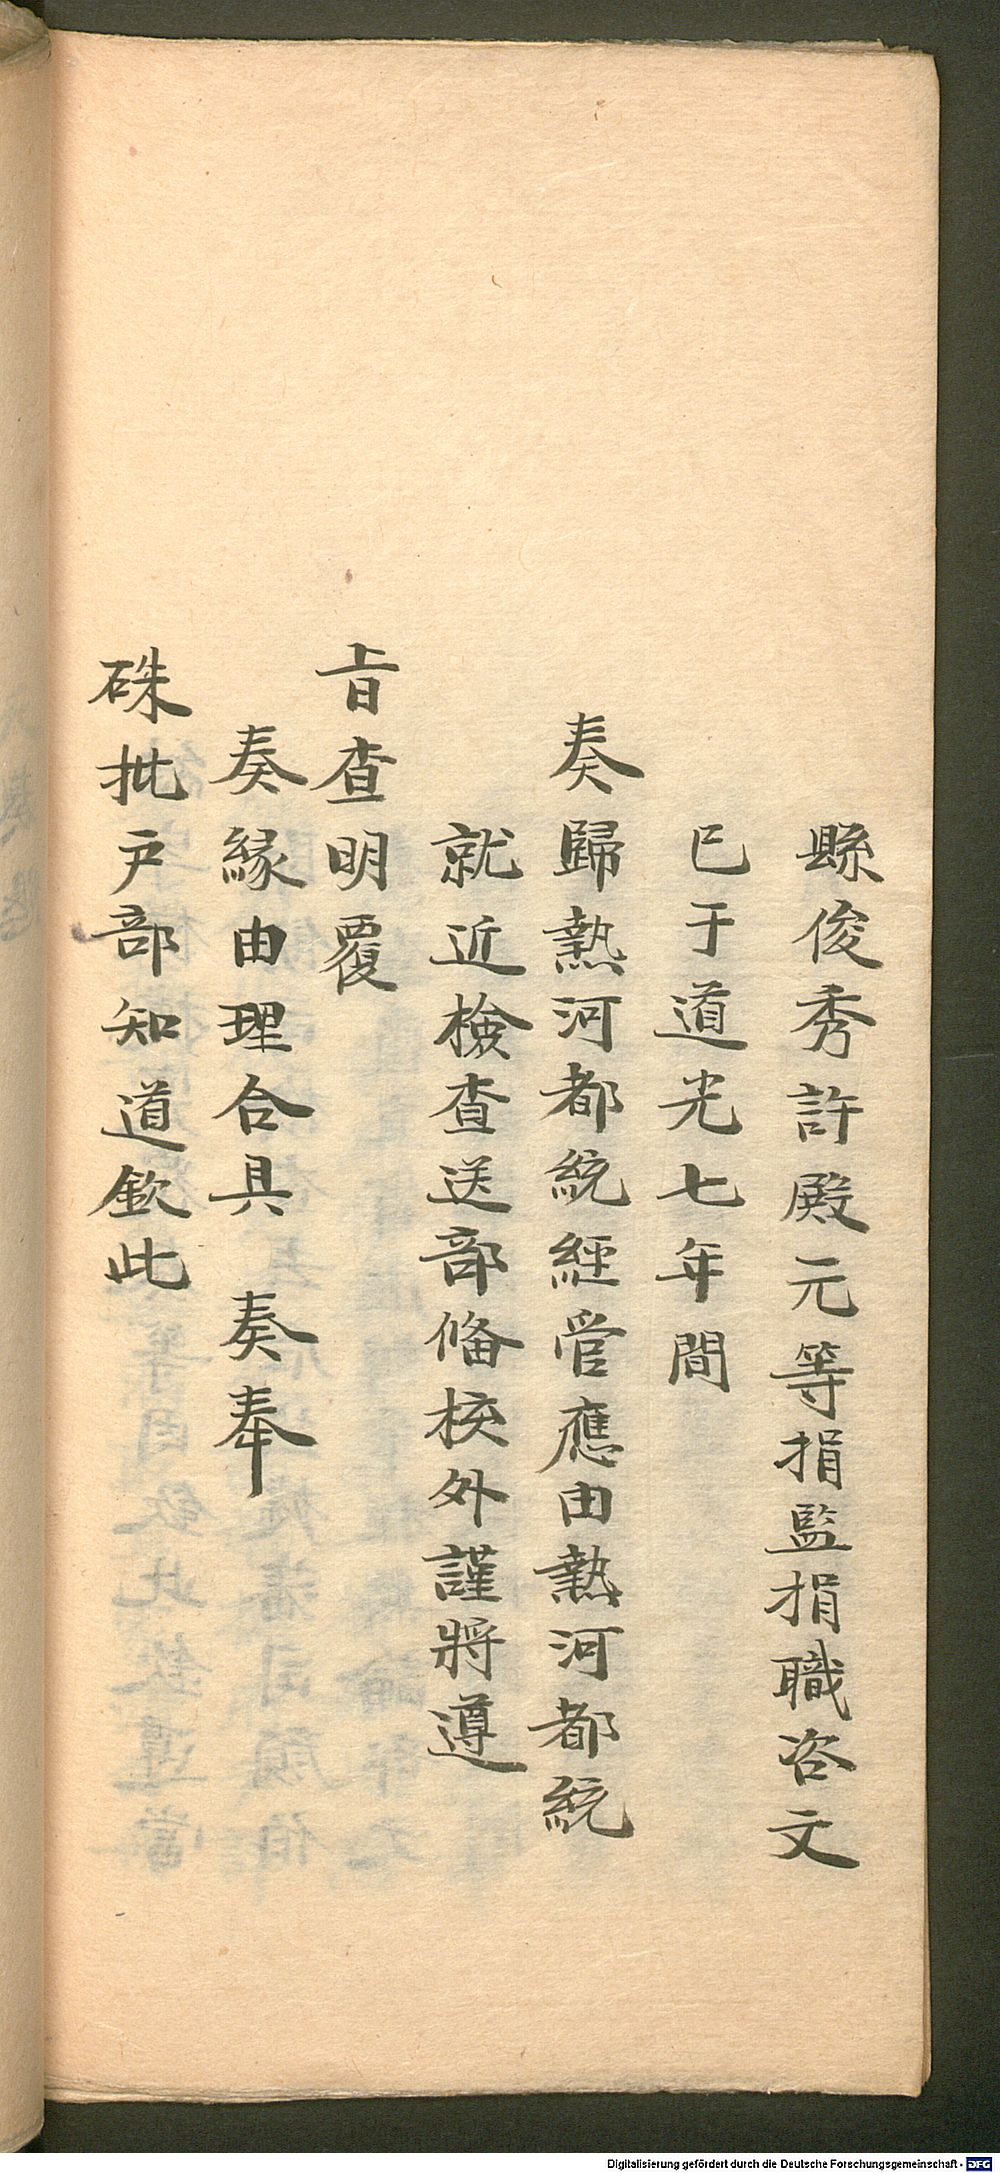 縣俊秀許殿元等捐監捐職咨文
已于道光七年間
奏歸熱河都統經管應由熱河都統
就近檢查送部俻校外謹將遵
旨查明覆
奏緣由理合具 奏奉
硃批戶部知道欽此
Digitalisierung gefördert durch die Deutsche Forschungsgemeinschaft - DFG